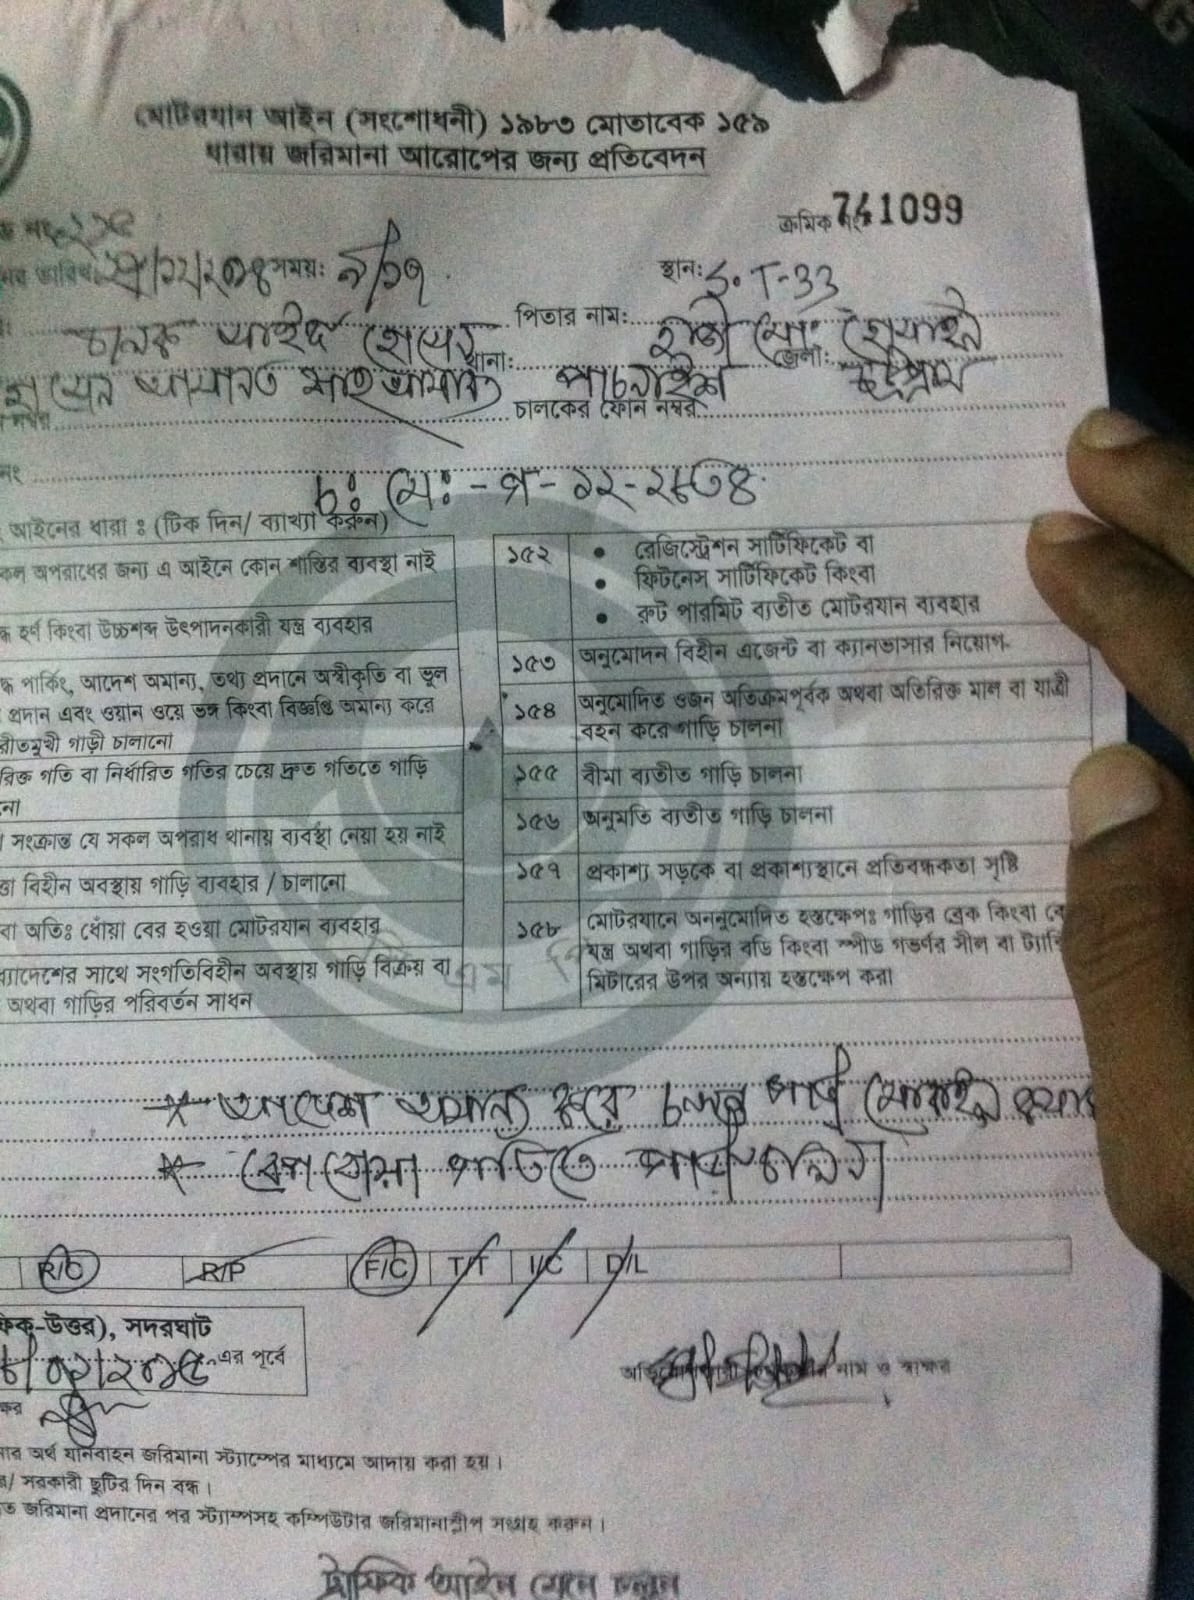 মোটরযান আইন (সংশোধনী) ১৯৮৩ মোতাবেক ১৫৯
ধারায় জরিমানা আরোপের জন্য প্রতিবেদন
ক্রমিক নং 741099
সময়: ৯/১৭
স্থান: S. T-33
চালক
পিতার নাম: হাজী মো:
থানা:
জেলা:
চালকের ফোন নম্বর
নং
চ: মে: - প্র - ১২ -
আইনের ধারা ঃ (টিক দিন/ ব্যাখ্যা করুন)
কল অপরাধের জন্য এ আইনে কোন শাস্তির ব্যবস্থা নাই
হর্ণ কিংবা উচ্চশব্দ উৎপাদনকারী যন্ত্র ব্যবহার
পার্কিং, আদেশ অমান্য, তথ্য প্রদানে অস্বীকৃতি বা ভূল
প্রদান এবং ওয়ান ওয়ে ভঙ্গ কিংবা বিজ্ঞপ্তি অমান্য করে
রীতমুখী গাড়ী চালানো
রিক্ত গতি বা নির্ধারিত গতির চেয়ে দ্রুত গতিতে গাড়ি
নো
সংক্রান্ত যে সকল অপরাধ থানায় ব্যবস্থা নেয়া হয় নাই
বিহীন অবস্থায় গাড়ি ব্যবহার / চালানো
বা অতিঃ ধোঁয়া বের হওয়া মোটরযান ব্যবহার
যাদেশের সাথে সংগতিবিহীন অবস্থায় গাড়ি বিক্রয় বা
অথবা গাড়ির পরিবর্তন সাধন
১৫২ • রেজিস্ট্রেশন সার্টিফিকেট বা
• ফিটনেস সার্টিফিকেট কিংবা
• রুট পারমিট ব্যতীত মোটরযান ব্যবহার
১৫৩ অনুমোদন বিহীন এজেন্ট বা ক্যানভাসার নিয়োগ
১৫৪ অনুমোদিত ওজন অতিক্রমপূর্বক অথবা অতিরিক্ত মাল বা যাত্রী
বহন করে গাড়ি চালনা
১৫৫ বীমা ব্যতীত গাড়ি চালনা
১৫৬ অনুমতি ব্যতীত গাড়ি চালনা
১৫৭ প্রকাশ্য সড়কে বা প্রকাশ্যস্থানে প্রতিবন্ধকতা সৃষ্টি
১৫৮ মোটরযানে অননুমোদিত হস্তক্ষেপঃ গাড়ির ব্রেক কিংবা
যন্ত্র অথবা গাড়ির বডি কিংবা স্পীড গভর্ণর সীল বা ট্যাক্সি
মিটারের উপর অন্যায় হস্তক্ষেপ করা
* আদেশ অমান্য করে চলন্ত গাড়ী মোবাইল
* বেপরোয়া গতিতে গাড়ী চালনা
R/C R/P F/C T/T I/C D/L
ফিক-উত্তর), সদরঘাট
এর পূর্বে
নাম ও স্বাক্ষর
অর্থ যানবাহন জরিমানা স্ট্যাম্পের মাধ্যমে আদায় করা হয়।
/ সরকারী ছুটির দিন বন্ধ।
জরিমানা প্রদানের পর স্ট্যাম্পসহ কম্পিউটার জরিমানাস্লীপ সংগ্রহ করুন।
ট্রাফিক আইন মেনে চলুন